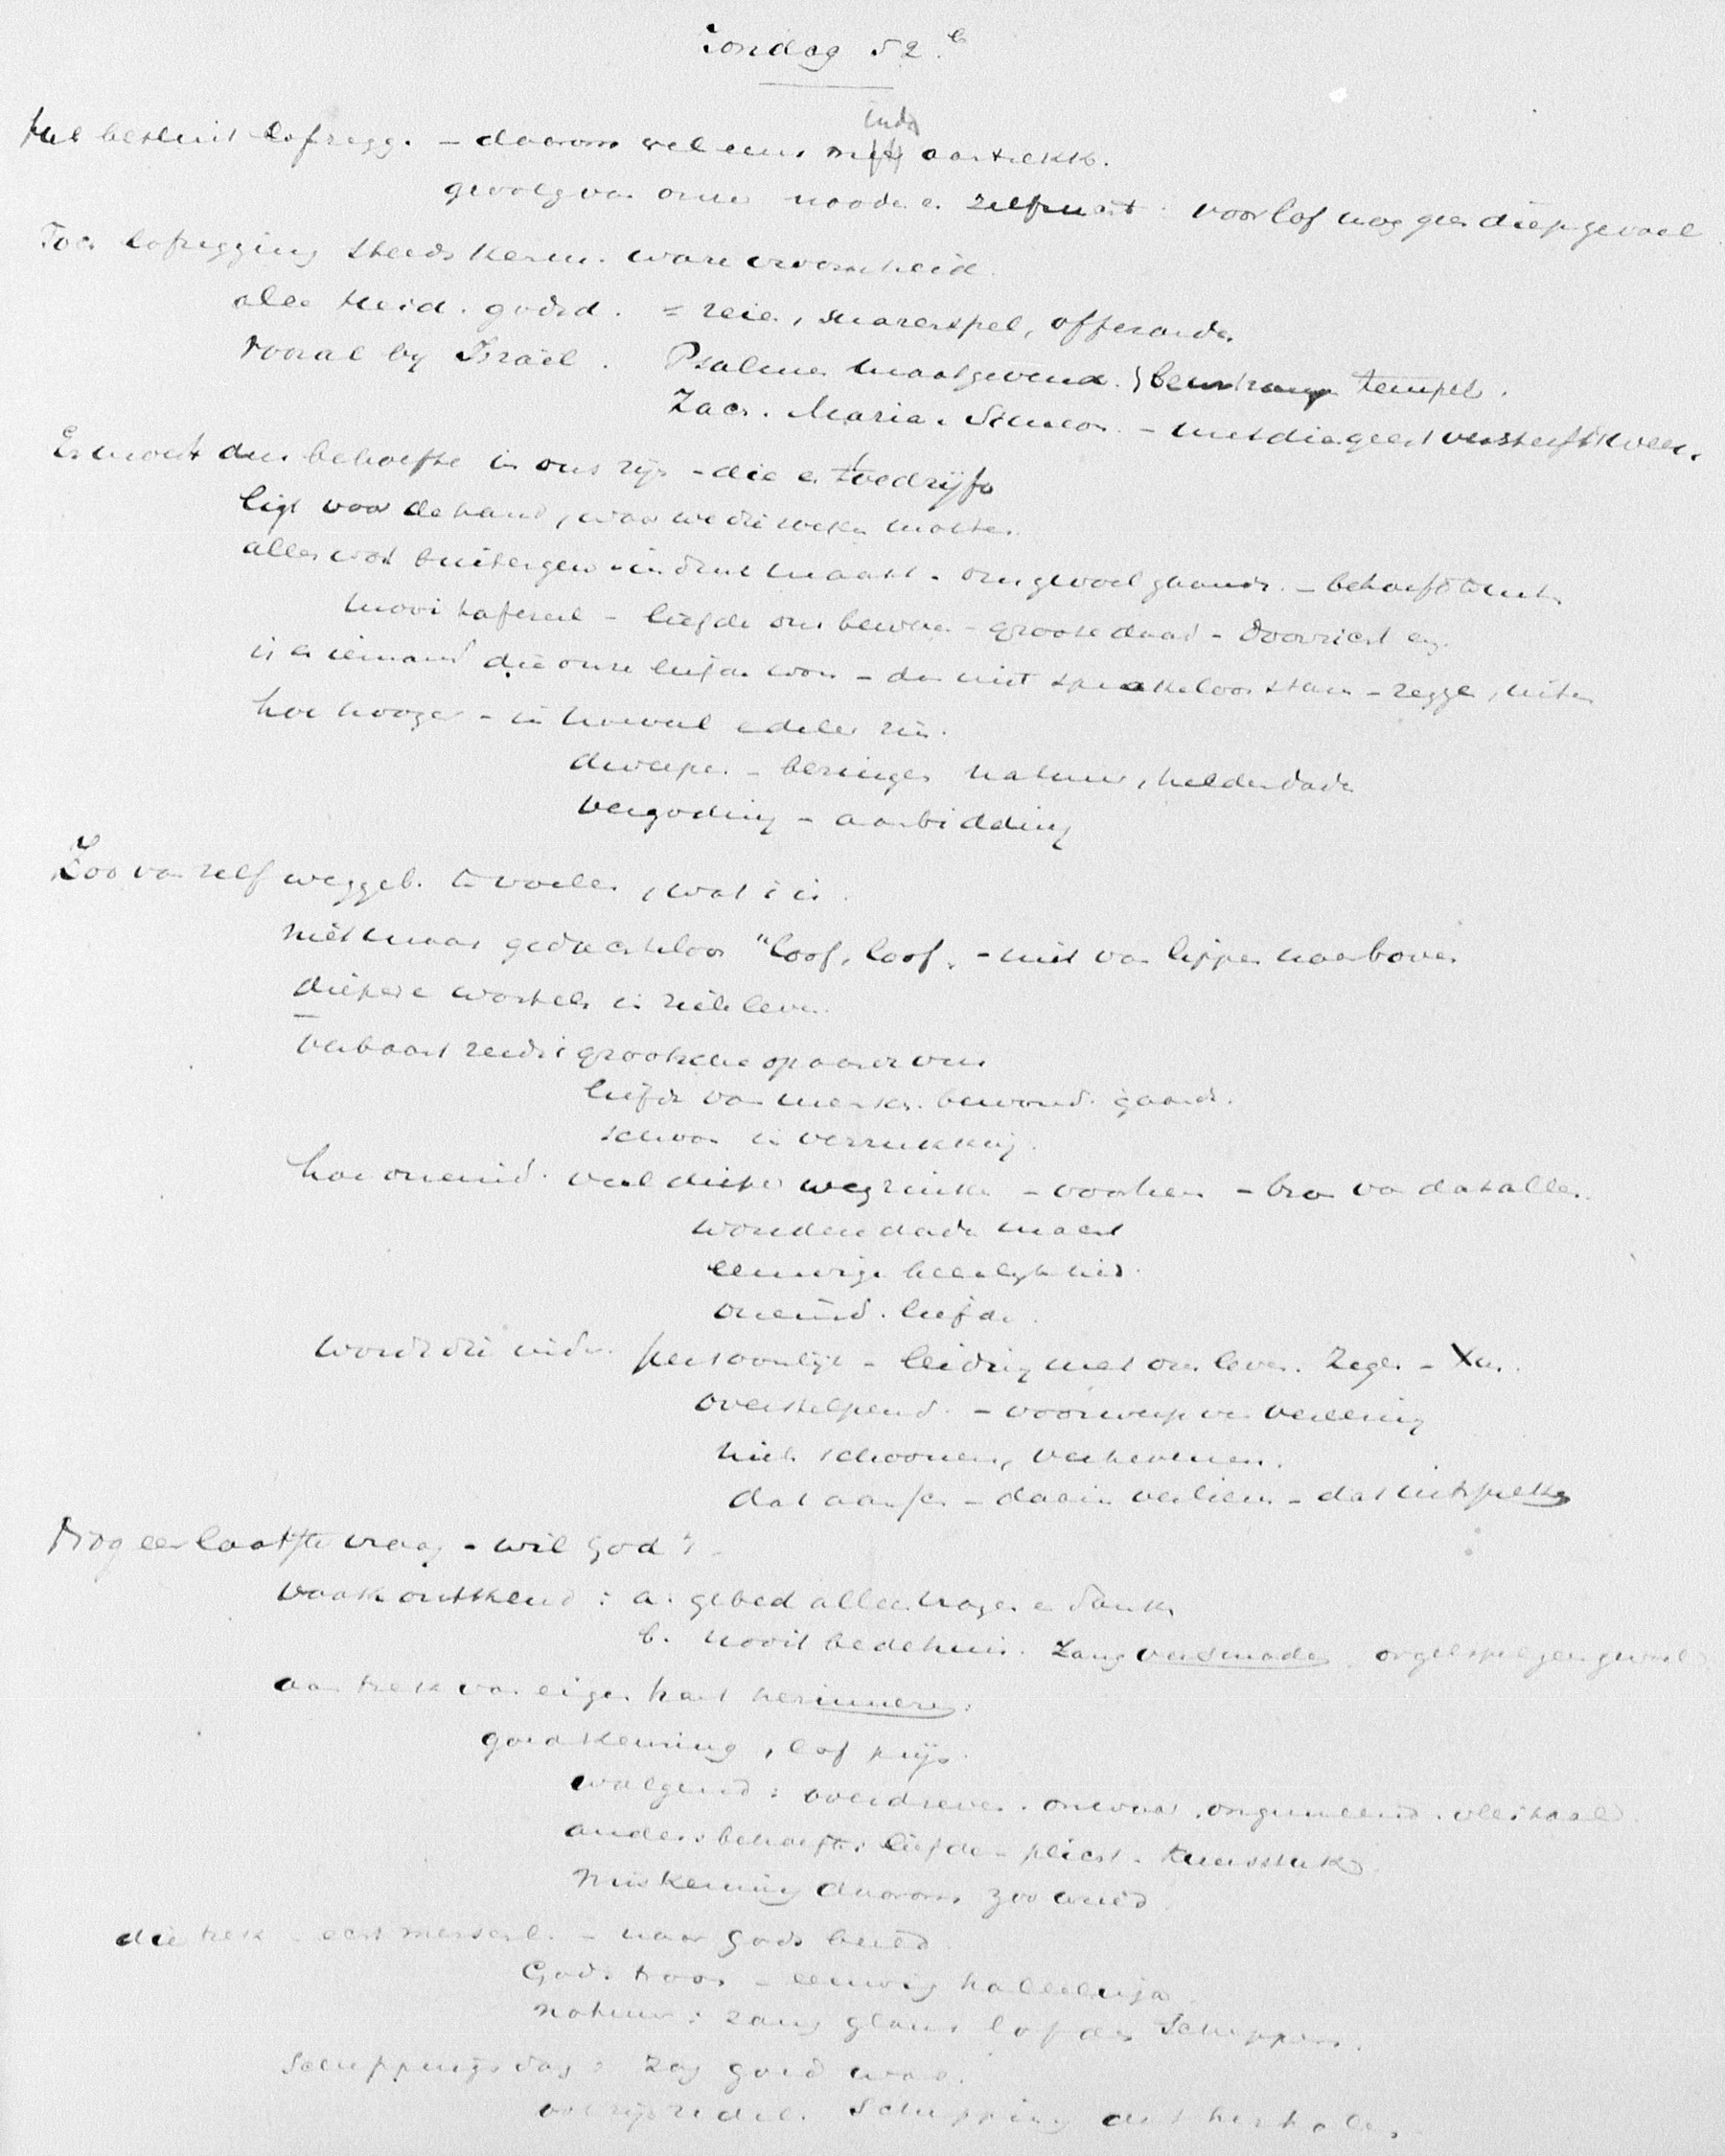 Zondag 52 b
Het besluit lofzegg. - daarom wel eens aantrekk.
gevolg van onze noode. voor lof nog geen diep gevoel
Toch lofzegging steeds kern. ware vroomheid.
alle heid. godsd. = reie, snarenspel, offerande.
vooral by Israël. Psalmen maatgevend. tempel.
Zach. Maria. Simeon. -
Er moet dus behoefte in ons zijn - die er toedrijft
ligt voor de hand, waar we die wekken mochten.
alles wat buitengew. indruk maakt - ons gevoel gaande. - behoefte te uiten
mooi tafereel - liefde ons bewezen - groote daad - doorzicht enz.
is er iemand die onze liefde won - dan niet sprakeloos staan - zeggen, uiten
hoe hooger - in hoeveel edeler zin.
dwepen - bezingen natuur, heldendaden
vergoding - aanbidding
Zoo van zelf weggeb. te voelen, wat is.
niet maar gedachteloos "loof, loof" - niet van lippen naar boven
diepere wortels in zieleleven.
verbaast reeds 't grootsche op aarde ons
liefde van mensch. bewond. gaande.
schoon in verrukking.
hoe oneind. veel dieper wegzinken - voor hem - bron van dat alles.
wonderdaden macht
eeuwige heerlijkheid.
oneind. liefde.
wordt die persoonlijk - leiding met ons leven. Zegen - Xus.
overstelpend - voorwerp van vereering
niets schooners, verheveners.
dat aan - daarin verliezen - dat uitspreken
Nog een laatste vraag - wil God 't
vaak ontkend: a. gebed alleen vragen en danken
b. nooit bedehuis. Zang versmaden. orgelspel geen gevoel
aan trek van eigen hart herinneren:
goedkeuring, lof prijs.
walgend: overdreven. onwaar. ongemeend. vleitaal
anders behoefte: liefde - plicht - kunststuk
miskenning daarom zoo wreed
die trek echt menschel. - naar Gods beeld
Gods troon - eeuwig halleluja
natuur: zang glans lof des Scheppers.
Scheppingsdag: zag goed was.
schepping dat herhalen.